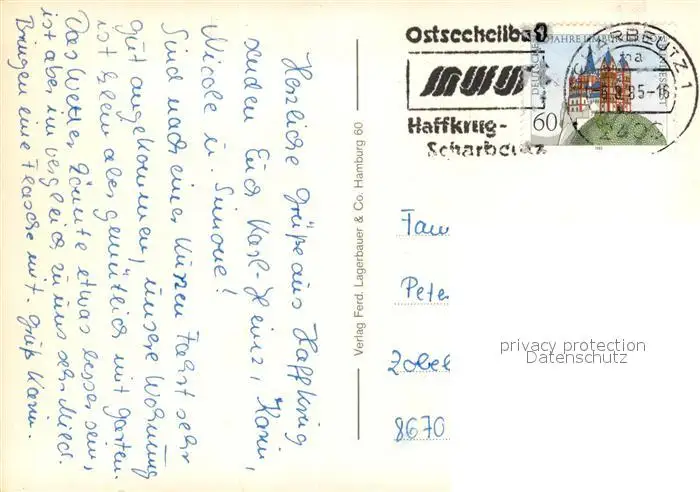 Herzliche Grüße aus Haffkrug
senden Euch Karl-Heinz, Karin,
Nicole u. Simone!
Sind nach einer kurzen Fahrt sehr
gut angekommen, unsere Wohnung
ist klein aber gemütlich mit Garten.
Das Wetter könnte etwas besser sein,
ist aber im vergleich zu uns sehr mild.
Bringen eine Flasche mit. Gruß Karin.
Verlag Ferd. Lagerbauer & Co. Hamburg 60
Ostseeheilbad
Haffkrug-
Scharbeutz
SCHARBEUTZ 1
ma
85-16
2409
DEUTSCHE BUNDESPOST
JAHRE LIMBURGER DOM
60
Fam
Pete
Zobel
8670
privacy protection
Datenschutz